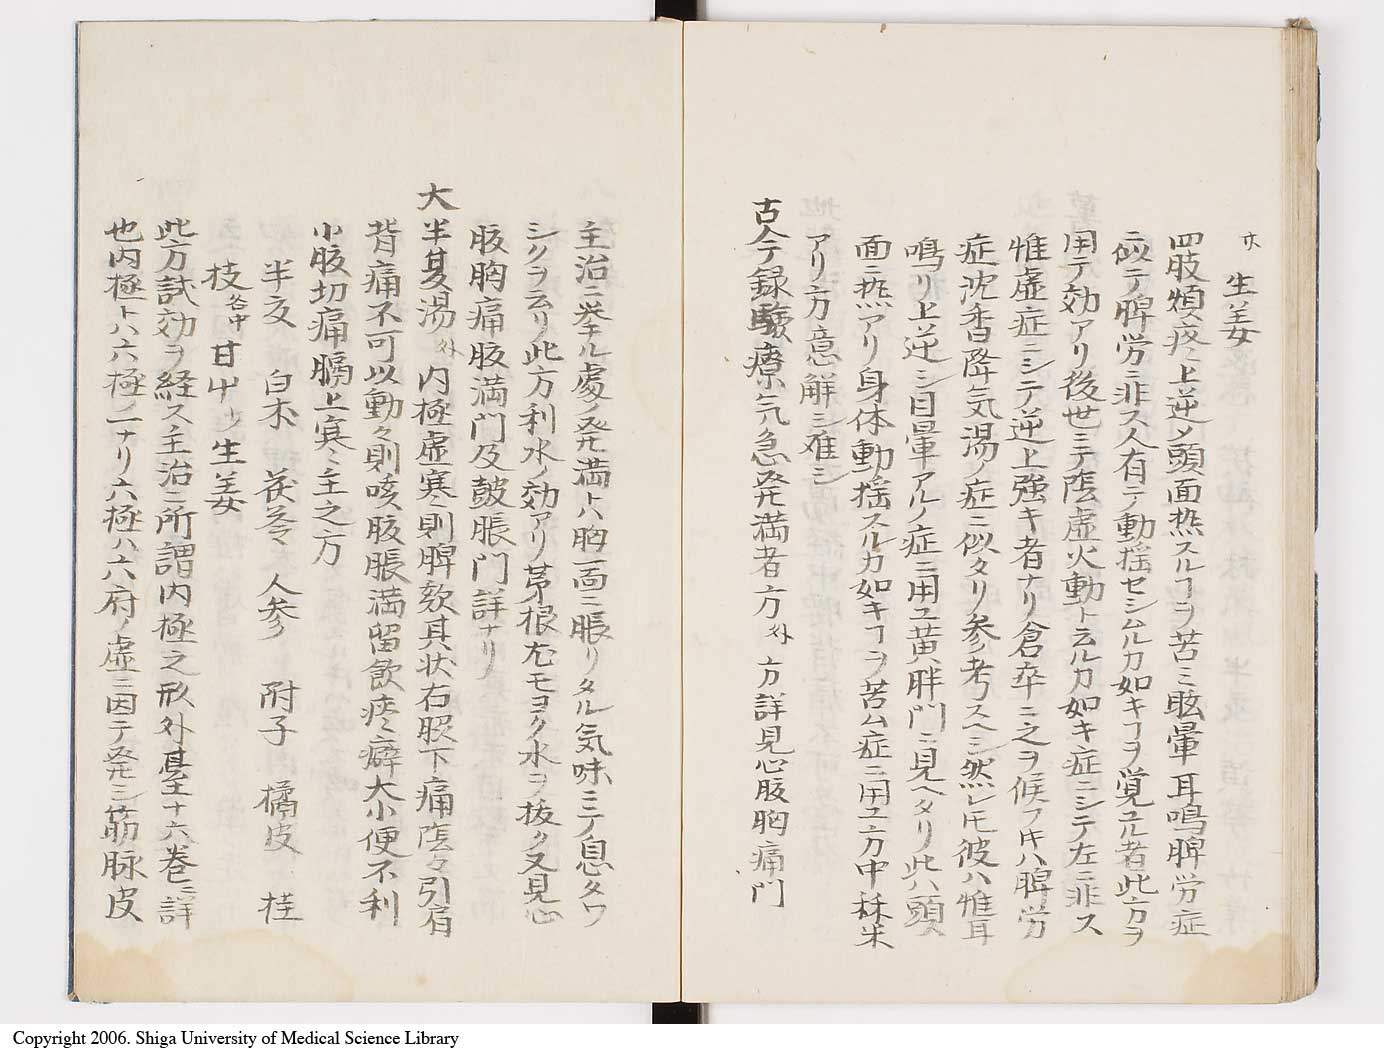 朩 生姜
四肢煩疼上逆ノ頭面热スルヿヲ苦ミ眩暈耳鳴脾労症
ニ似テ脾労ニ非ス人有テ動揺セシムルカ如キヿヲ覚ユル者此方ヲ
用テ効アリ後世ミテ陰虚火動ト云ルカ如キ症ニシテ左ニ非ス
惟虚症ニシテ逆上强キ者ナリ倉卒ニ之ヲ候フキハ脾労
症沈香降気湯ノ症ニ似タリ参考スヘシ然レ𪜈彼ハ惟耳
鳴リ上逆シ目暈アルノ症ニ用ユ黄胖門ニ見ヘタリ此ハ頭
面ニ热アリ身体動揺スルカ如キヿヲ苦ム症ニ用ユ方中秫米
アリ方意解シ难シ
古今録驗療気急発満者方 外 方詳見心腹胸痛門
主治ニ挙ル處ノ発満ハ胸一面ニ脹リタル気味ニテ息タワ
シクヲ云リ此方利水ノ効アリ茅根尤モヨク水ヲ抜ク又見心
腹胸痛腹満門及鼓脹門詳ナリ
大半夏湯 外 内極虚寒則脾欬其状右脇下痛陰々引肩
背痛不可以動々則咳腹脹満留飲痰癖大小便不利
小腹切痛膈上寒主之方
半夏 白朮 茯苓 人参 附子 橘皮 桂
枝各中 甘中少 生姜
此方試効ヲ経ス主治ニ所謂内極之形外臺十六巻ニ詳
也内極トハ六極ノ一ナリ六極ハ六府ノ虚ニ因テ発シ筋脉皮
Copyright 2006. Shiga University of Medical Science Library